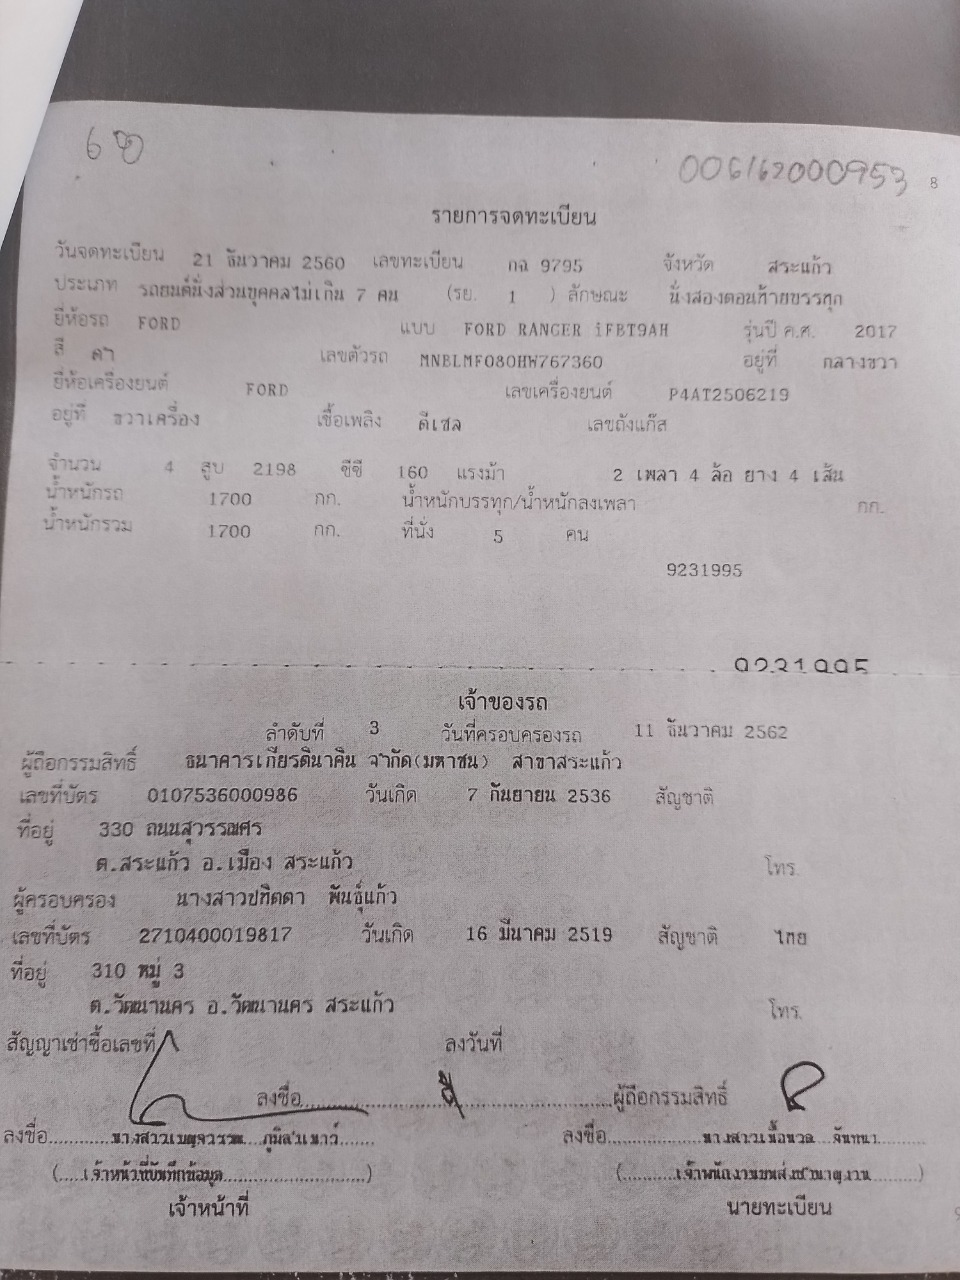 006162000953 8
รายการจดทะเบียน
วันจดทะเบียน 21 ธันวาคม 2560 เลขทะเบียน กฉ 9795 จังหวัด สระแก้ว
ประเภท รถยนต์นั่งส่วนบุคคลไม่เกิน 7 คน (รย. 1 ) ลักษณะ นั่งสองตอนท้ายบรรทุก
ยี่ห้อรถ FORD แบบ FORD RANGER iFBT9AH รุ่นปี ค.ศ. 2017
สี ดำ เลขตัวรถ MNBLMF080HW767360 อยู่ที่ กลางขวา
ยี่ห้อเครื่องยนต์ FORD เลขเครื่องยนต์ P4AT2506219
อยู่ที่ ขวาเครื่อง เชื้อเพลิง ดีเซล เลขถังแก๊ส
จำนวน 4 สูบ 2198 ซีซี 160 แรงม้า 2 เพลา 4 ล้อ ยาง 4 เส้น
น้ำหนักรถ 1700 กก. น้ำหนักบรรทุก/น้ำหนักลงเพลา กก.
น้ำหนักรวม 1700 กก. ที่นั่ง 5 คน
9231995
9231995
เจ้าของรถ
ลำดับที่ 3 วันที่ครอบครองรถ 11 ธันวาคม 2562
ผู้ถือกรรมสิทธิ์ ธนาคารเกียรตินาคิน จำกัด(มหาชน) สาขาสระแก้ว
เลขที่บัตร 0107536000986 วันเกิด 7 กันยายน 2536 สัญชาติ
ที่อยู่ 330 ถนนสุวรรณศร
ต.สระแก้ว อ.เมือง สระแก้ว โทร.
ผู้ครอบครอง นางสาวปทิตตา พันธุ์แก้ว
เลขที่บัตร 2710400019817 วันเกิด 16 มีนาคม 2519 สัญชาติ ไทย
ที่อยู่ 310 หมู่ 3
ต.วัฒนานคร อ.วัฒนานคร สระแก้ว โทร.
สัญญาเช่าซื้อเลขที่ ลงวันที่
ลงชื่อ ผู้ถือกรรมสิทธิ์
ลงชื่อ นางสาวเบญจวรรณ ลงชื่อ นางสาวเนื้อนวล จันทนา
(เจ้าหน้าที่บันทึกข้อมูล) (เจ้าพนักงานขนส่งชำนาญงาน)
เจ้าหน้าที่ นายทะเบียน